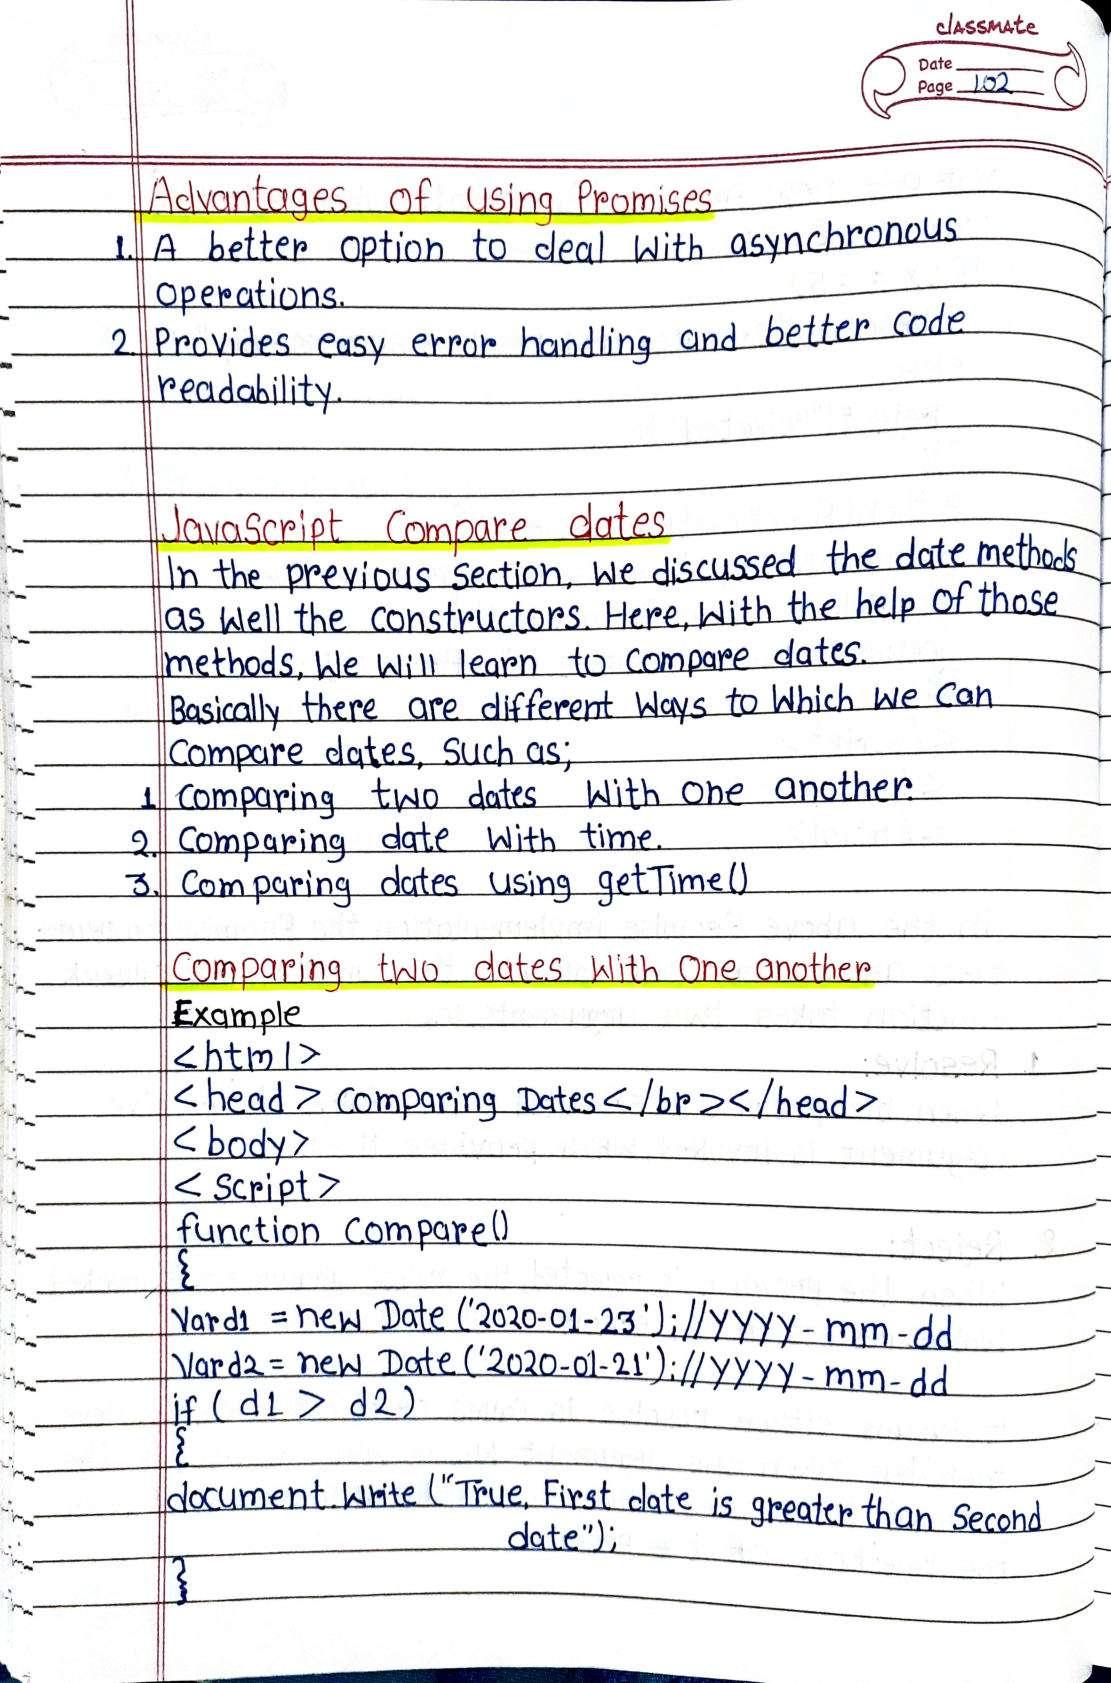 classmate
Date
Page 102
Advantages of using Promises
1. A better option to deal with asynchronous
operations.
2. Provides easy error handling and better code
readability.
JavaScript Compare dates
In the previous section, we discussed the date methods
as well the constructors. Here, with the help of those
methods, we will learn to compare dates.
Basically there are different ways to which we can
compare dates, such as;
1. Comparing two dates with one another.
2. Comparing date with time.
3. Comparing dates using getTime()
Comparing two dates with one another
Example
<html>
<head> Comparing Dates</br></head>
<body>
<script>
function compare()
{
Var d1 = new Date ('2020-01-23');//YYYY-mm-dd
Var d2 = new Date ('2020-01-21');//YYYY-mm-dd
if ( d1 > d2)
{
document.write ("True, First date is greater than second
date");
}